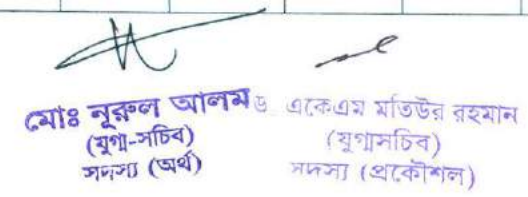 মোঃ নূরুল আলম
(যুগ্ম-সচিব)
সদস্য (অর্থ)
একেএম মতিউর রহমান
(যুগ্মসচিব)
সদস্য (প্রকৌশল)